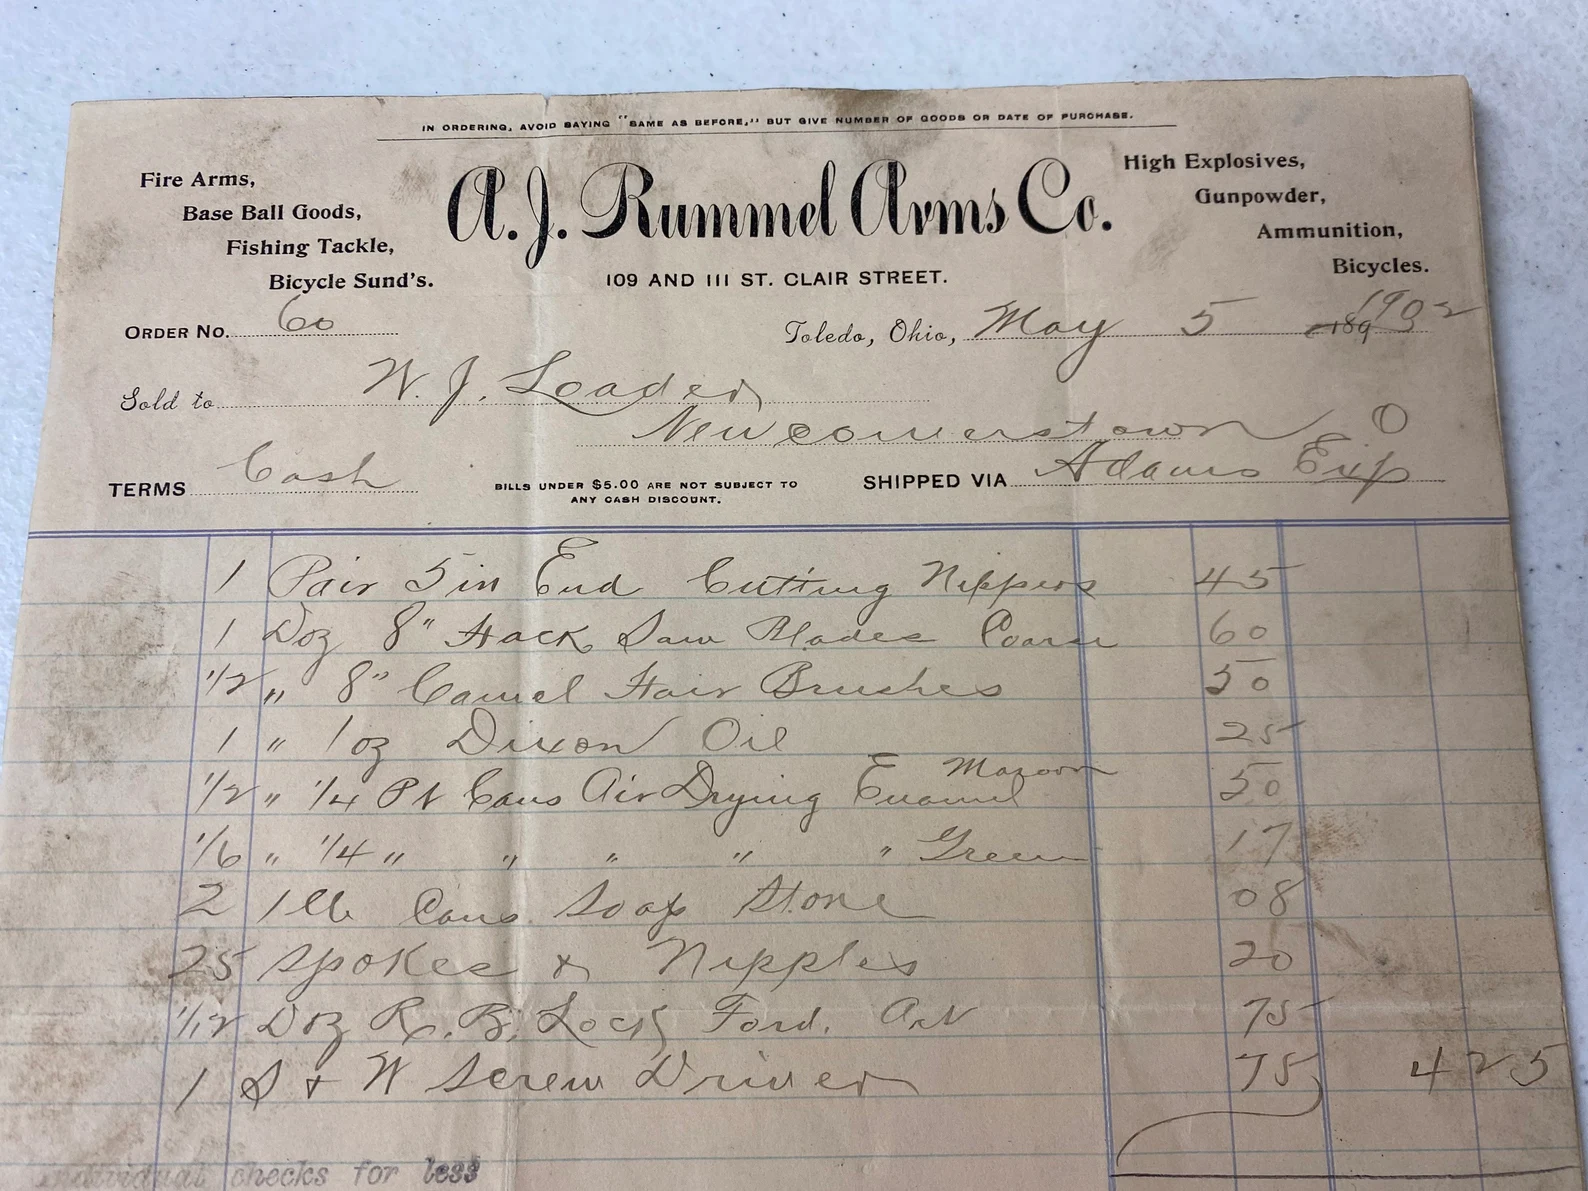 IN ORDERING, AVOID SAYING "SAME AS BEFORE," BUT GIVE NUMBER OF GOODS OR DATE OF PURCHASE.
Fire Arms,
Base Ball Goods,
Fishing Tackle,
Bicycle Sund's.
A. J. Rummel Arms Co.
109 AND 111 ST. CLAIR STREET.
High Explosives,
Gunpowder,
Ammunition,
Bicycles.
ORDER No. 60
Toledo, Ohio, May 5 1902
Sold to W. J. Loader
Newcomerstown O
TERMS Cash
BILLS UNDER $5.00 ARE NOT SUBJECT TO
ANY CASH DISCOUNT.
SHIPPED VIA Adams Exp
1 Pair 5 in End Cutting Nippers 45
1 Doz 8" Hack Saw Blades Coarse 60
1/2 " 8" Camel Hair Brushes 50
1 " 1 oz Dixon Oil 25
1/2 " 1/4 Pt Cans Air Drying Enamel Maroon 50
1/6 " 1/4 " " " " " Green 17
2 1 lb Cans Soap Stone 08
25 Spokes & Nipples 20
1/12 Doz R. B. Lock Ford. 75
1 S & W Screw Driver 75 4 25
individual checks for less